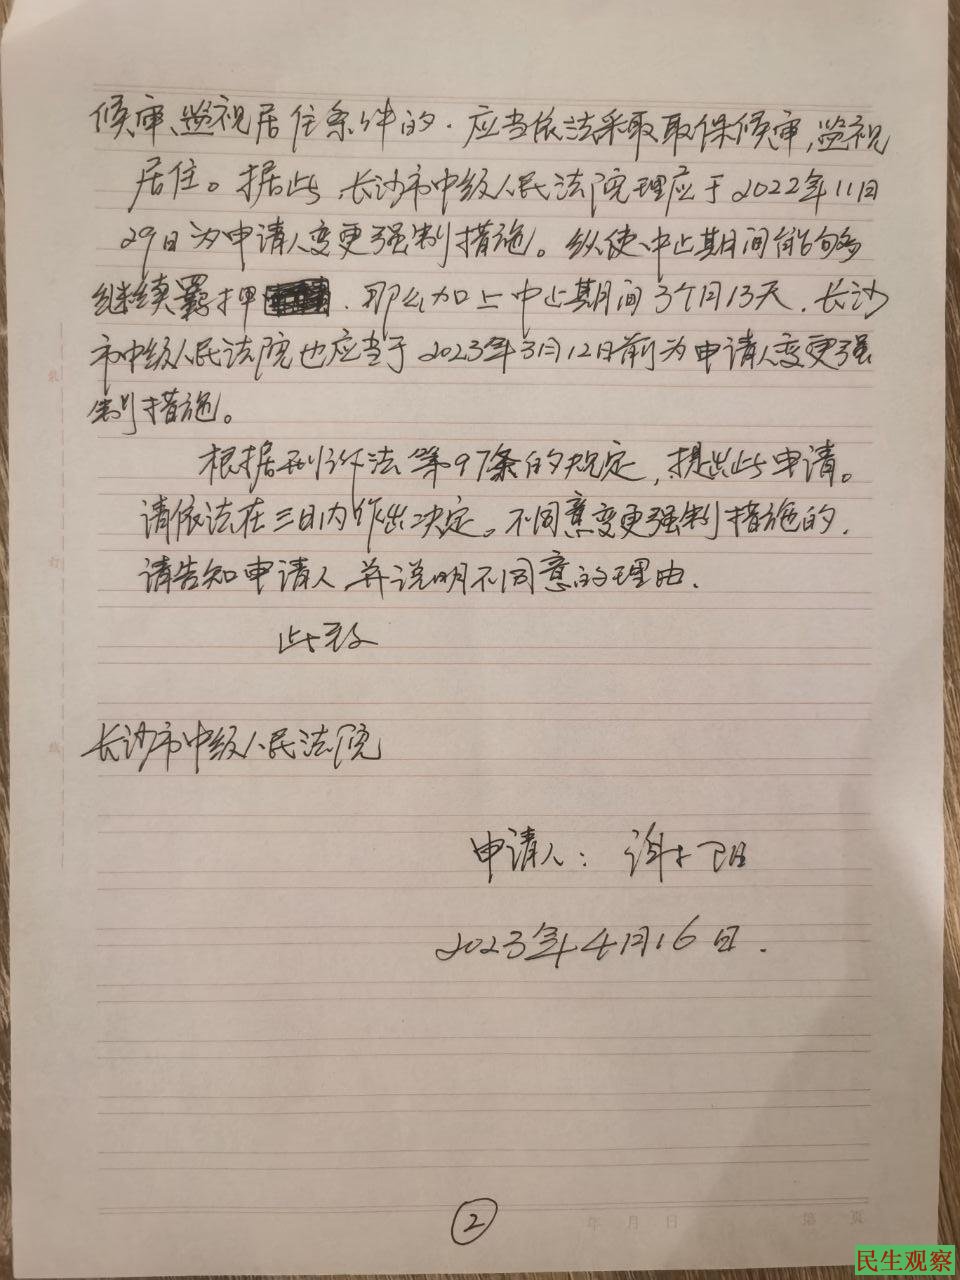 候审、监视居住条件的,应当依法采取取保候审,监视
居住。据此,长沙市中级人民法院理应于2022年11月
29日为申请人变更强制措施。纵使中止期间能够
继续羁押,那么加上中止期间3个月13天,长沙
市中级人民法院也应当于2023年3月12日前为申请人变更强
制措施。
根据刑诉法第97条的规定,提出此申请。
请依法在三日内作出决定。不同意变更强制措施的,
请告知申请人,并说明不同意的理由.
此致
长沙市中级人民法院
申请人:谢阳
2023年4月16日.
②
年 月 日 第 页
装
订
线
民生观察